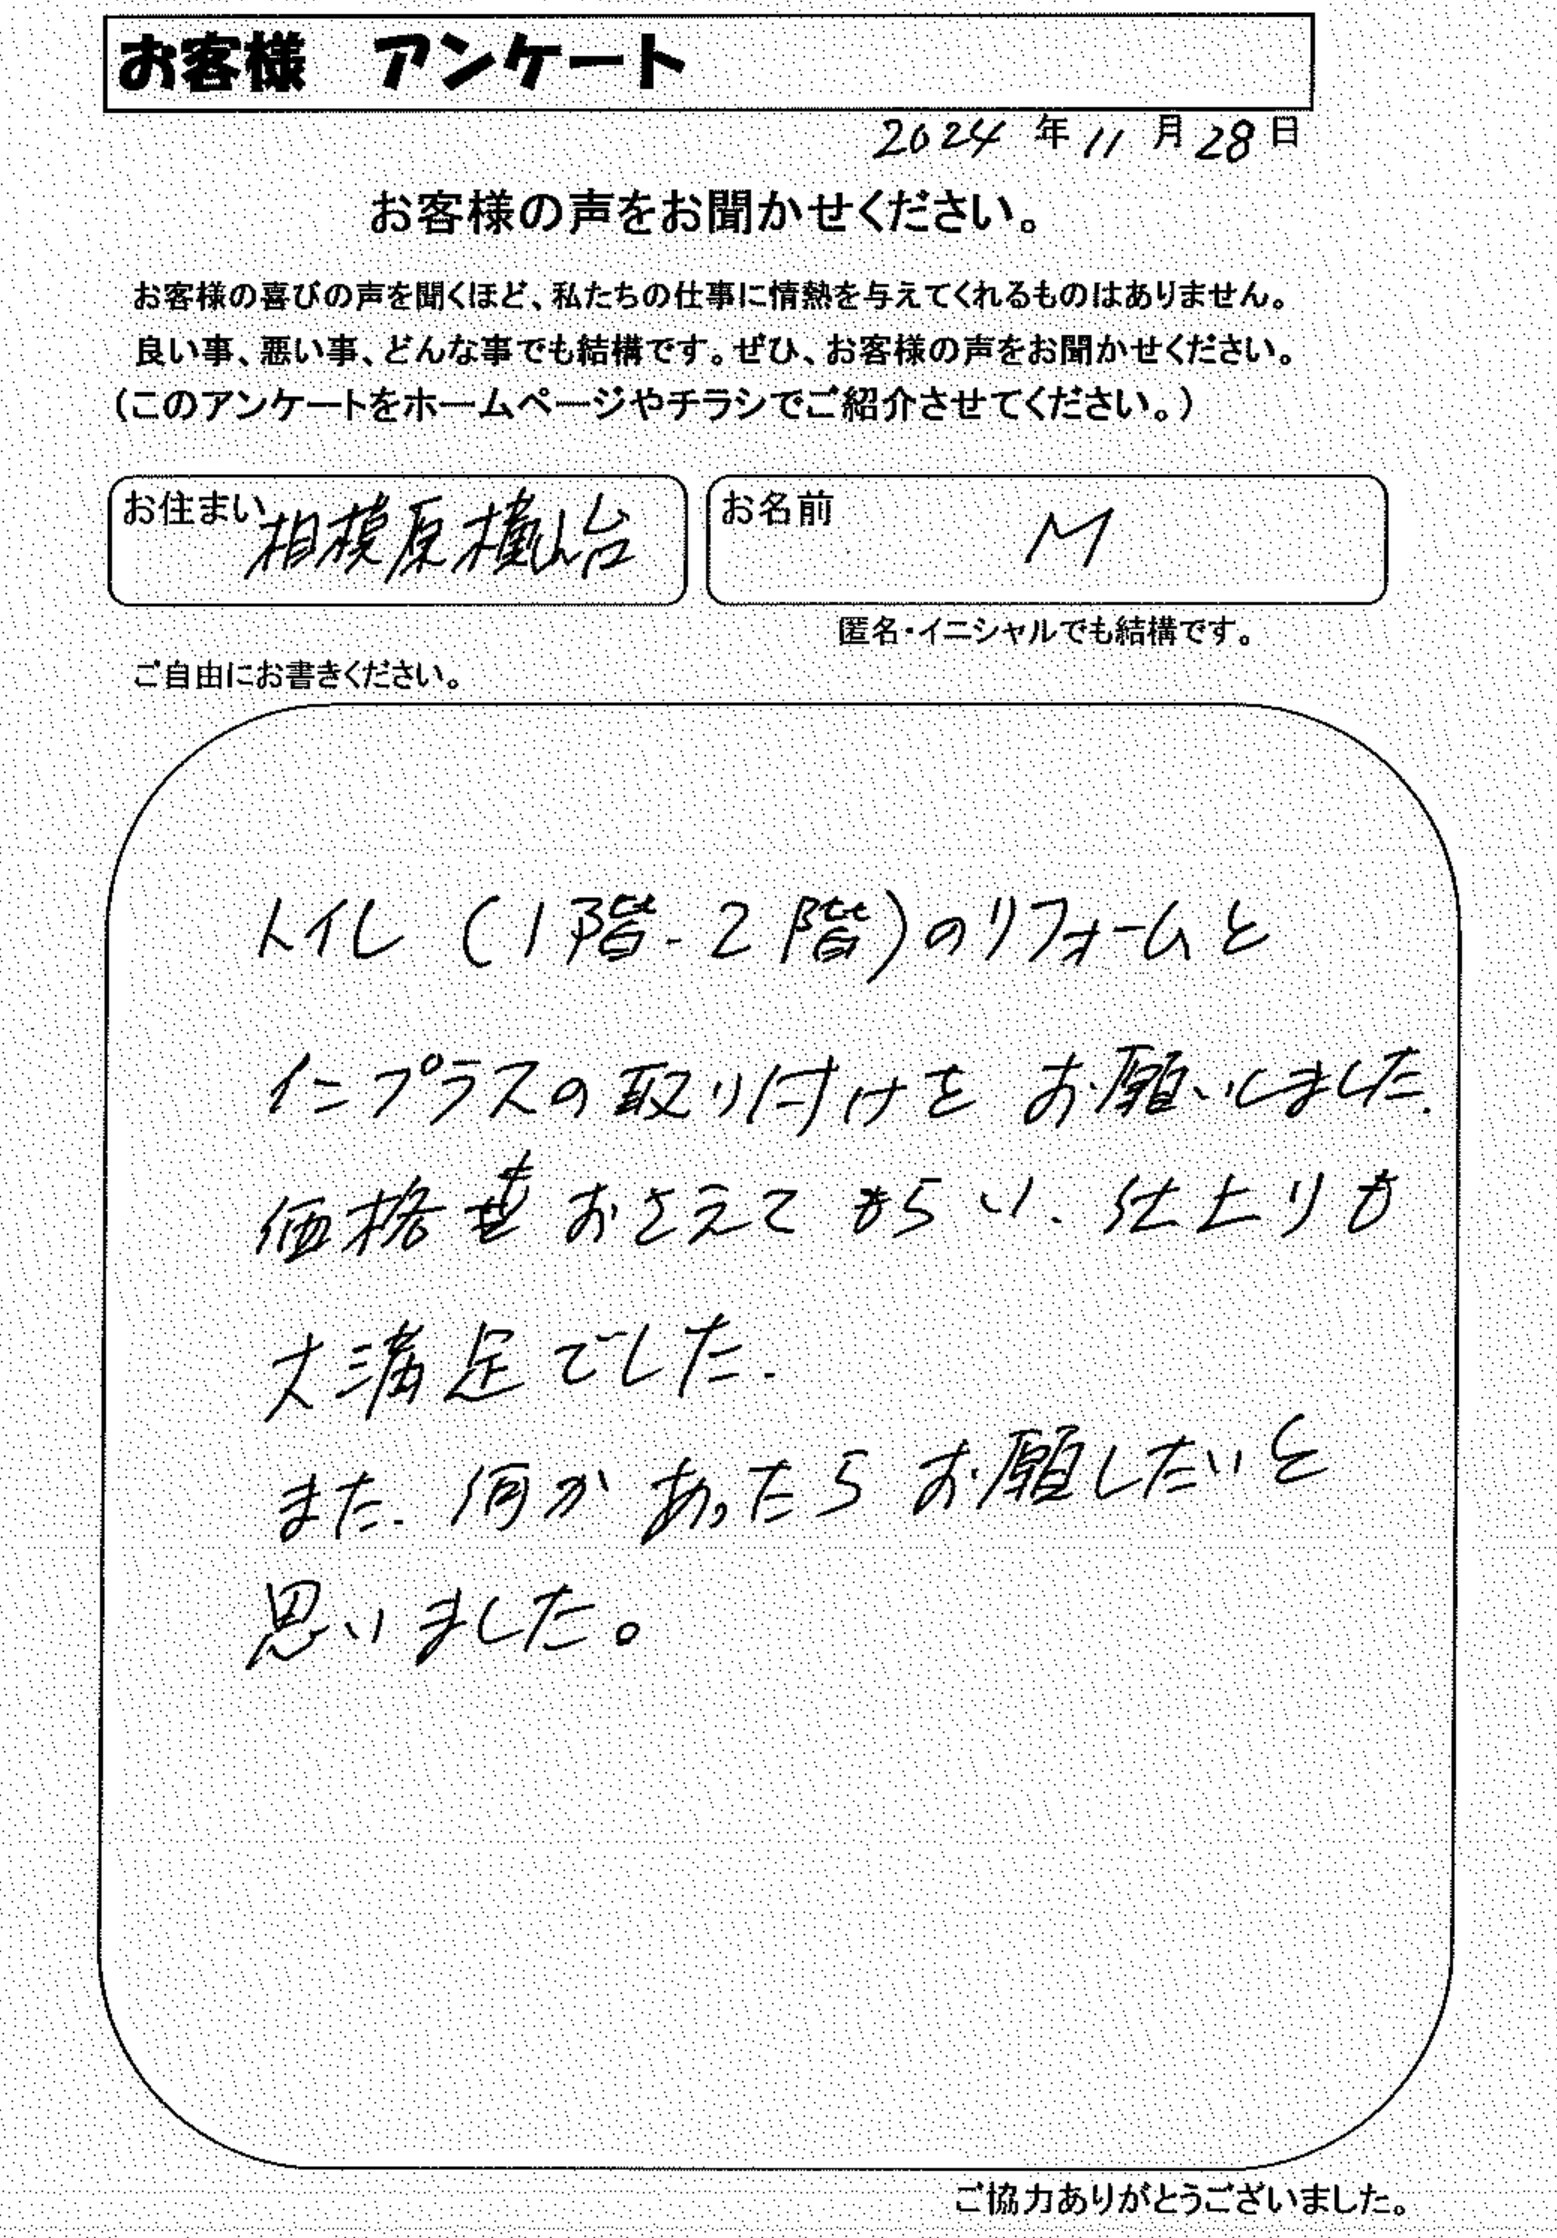 お客様　アンケート
2024 年 11 月 28 日
お客様の声をお聞かせください。
お客様の喜びの声を聞くほど、私たちの仕事に情熱を与えてくれるものはありません。
良い事、悪い事、どんな事でも結構です。ぜひ、お客様の声をお聞かせください。
（このアンケートをホームページやチラシでご紹介させてください。）
お住まい 相模原横山台
お名前 M
匿名・イニシャルでも結構です。
ご自由にお書きください。
トイレ (1階-2階)のリフォームと
インプラスの取り付けを お願いしました.
価格 おさえて もらい. 仕上りも
大満足でした.
また. 何か あったら お願したいと
思いました。
ご協力ありがとうございました。